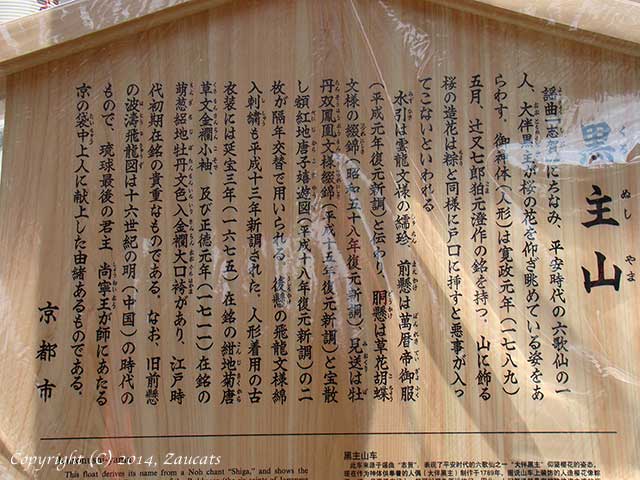 黒主山
謡曲「志賀」にちなみ、平安時代の六歌仙の一
人、大伴黒主が桜の花を仰ぎ眺めている姿をあ
らわす。御神体(人形)は寛政元年(一七八九)
五月、辻又七郎狛元澄作の銘を持つ。山に飾る
桜の造花は粽と同様に戸口に挿すと悪事が入っ
てこないといわれる。
水引は雲龍文様の繻珍、前懸は萬暦帝御服
(平成元年復元新調)と伝わり、胴懸は草花胡蝶
文様の綴錦(昭和五十八年復元新調)、見送は牡
丹双鳳凰文様綴錦(平成十五年復元新調)と宝散
し額紅地唐子嬉遊図(平成十八年復元新調)の二
枚が隔年交替で用いられる。後懸の飛龍文様綿
入刺繍も平成十三年新調された。人形着用の古
衣装には延宝三年(一六七五)在銘の紺地菊唐
草文金襴小袖、及び正徳元年(一七一一)在銘の
萌葱絽地牡丹文色入金襴大口袴があり、江戸時
代初期在銘の貴重なものである。なお、旧前懸
の波濤飛龍図は十六世紀の明(中国)の時代の
もので、琉球最後の君主 尚寧王が師にあたる
京の袋中上人に献上した由緒あるものである。
京都市
This float derives its name from a Noh chant "Shiga," and shows the
黑主山车
此车来源于谣曲 "志贺"，表现了平安时代的六歌仙之一 "大伴黑主" 仰望樱花的姿态。
Copyright (C) 2014, Zaucats